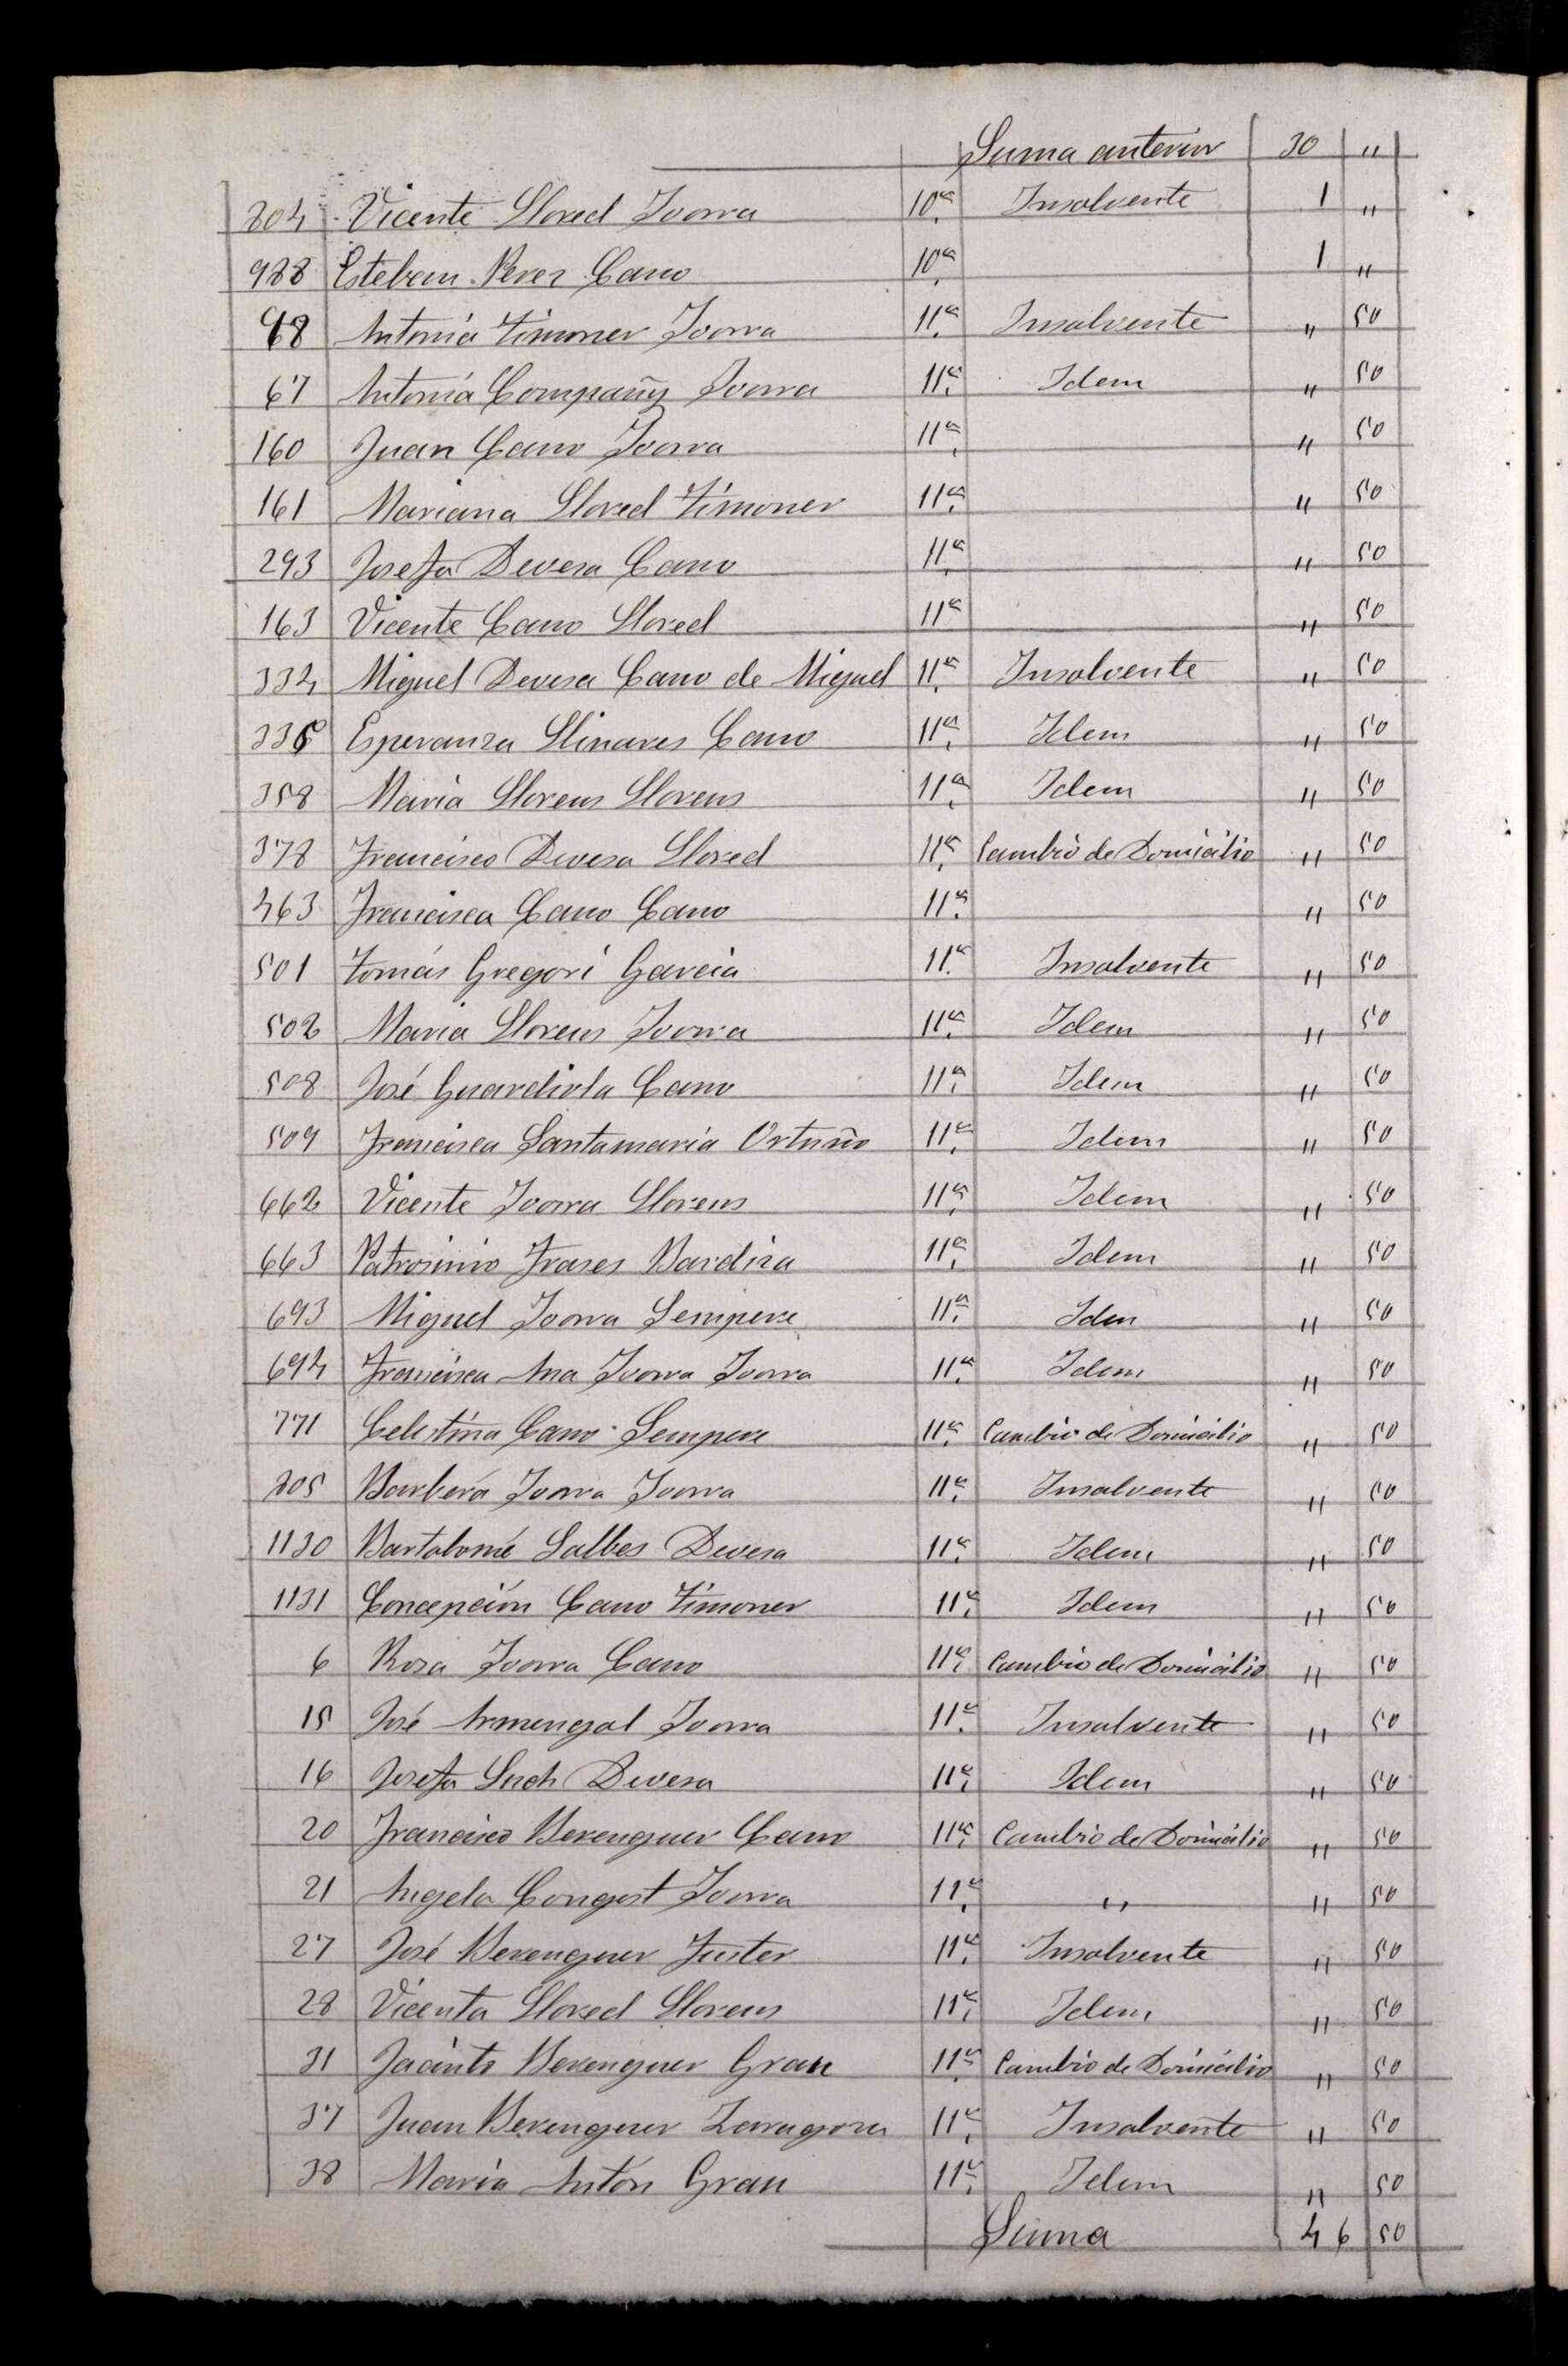 Suma anterior 30 "
804 Vicente Llored Ivorra 10ª Insolvente 1 "
988 Esteban Perez Cano 10ª 1 "
68 Antonia Timoner Ivorra 11ª Insolvente " 50
67 Antonia Compañy Ivorra 11ª Idem " 50
160 Juan Cano Ivorra 11ª " 50
161 Mariana Llored Timoner 11ª " 50
293 Josefa Devesa Cano 11ª " 50
163 Vicente Cano Llored 11ª " 50
334 Miguel Devesa Cano de Miguel 11ª Insolvente " 50
335 Esperanza Llinares Cano 11ª Idem " 50
358 Maria Llorens Llorens 11ª Idem " 50
378 Francisco Devesa Llored 11ª Cambio de Domicilio " 50
463 Francisca Cano Cano 11ª " 50
501 Tomás Gregori Garcia 11ª Insolvente " 50
502 Maria Llorens Ivorra 11ª Idem " 50
508 José Guardiola Cano 11ª Idem " 50
509 Francisca Santamaria Ortuño 11ª Idem " 50
662 Vicente Ivorra Llorens 11ª Idem " 50
663 Patrosinio Frases Bardisa 11ª Idem " 50
693 Miguel Ivorra Sempere 11ª Idem " 50
694 Francisca Ana Ivorra Ivorra 11ª Idem " 50
771 Celestina Cano Sempere 11ª Cambio de Domicilio " 50
805 Barbera Ivorra Ivorra 11ª Insolvente " 50
1130 Bartolomé Galbes Devesa 11ª Idem " 50
1131 Concepción Cano Timoner 11ª Idem " 50
6 Rosa Ivorra Cano 11ª Cambio de Domicilio " 50
15 José Armengol Ivorra 11ª Insolvente " 50
16 Josefa Such Devesa 11ª Idem " 50
20 Francisco Berenguer Cano 11ª Cambio de Domicilio " 50
21 Angela Congost Ivorra 11ª " " 50
27 José Berenguer Fuster 11ª Insolvente " 50
28 Vicenta Llored Llorens 11ª Idem " 50
31 Jacinto Berenguer Grau 11ª Cambio de Domicilio " 50
37 Juan Berenguer Zaragoza 11ª Insolvente " 50
38 Maria Antón Grau 11ª Idem " 50
Suma 46 50